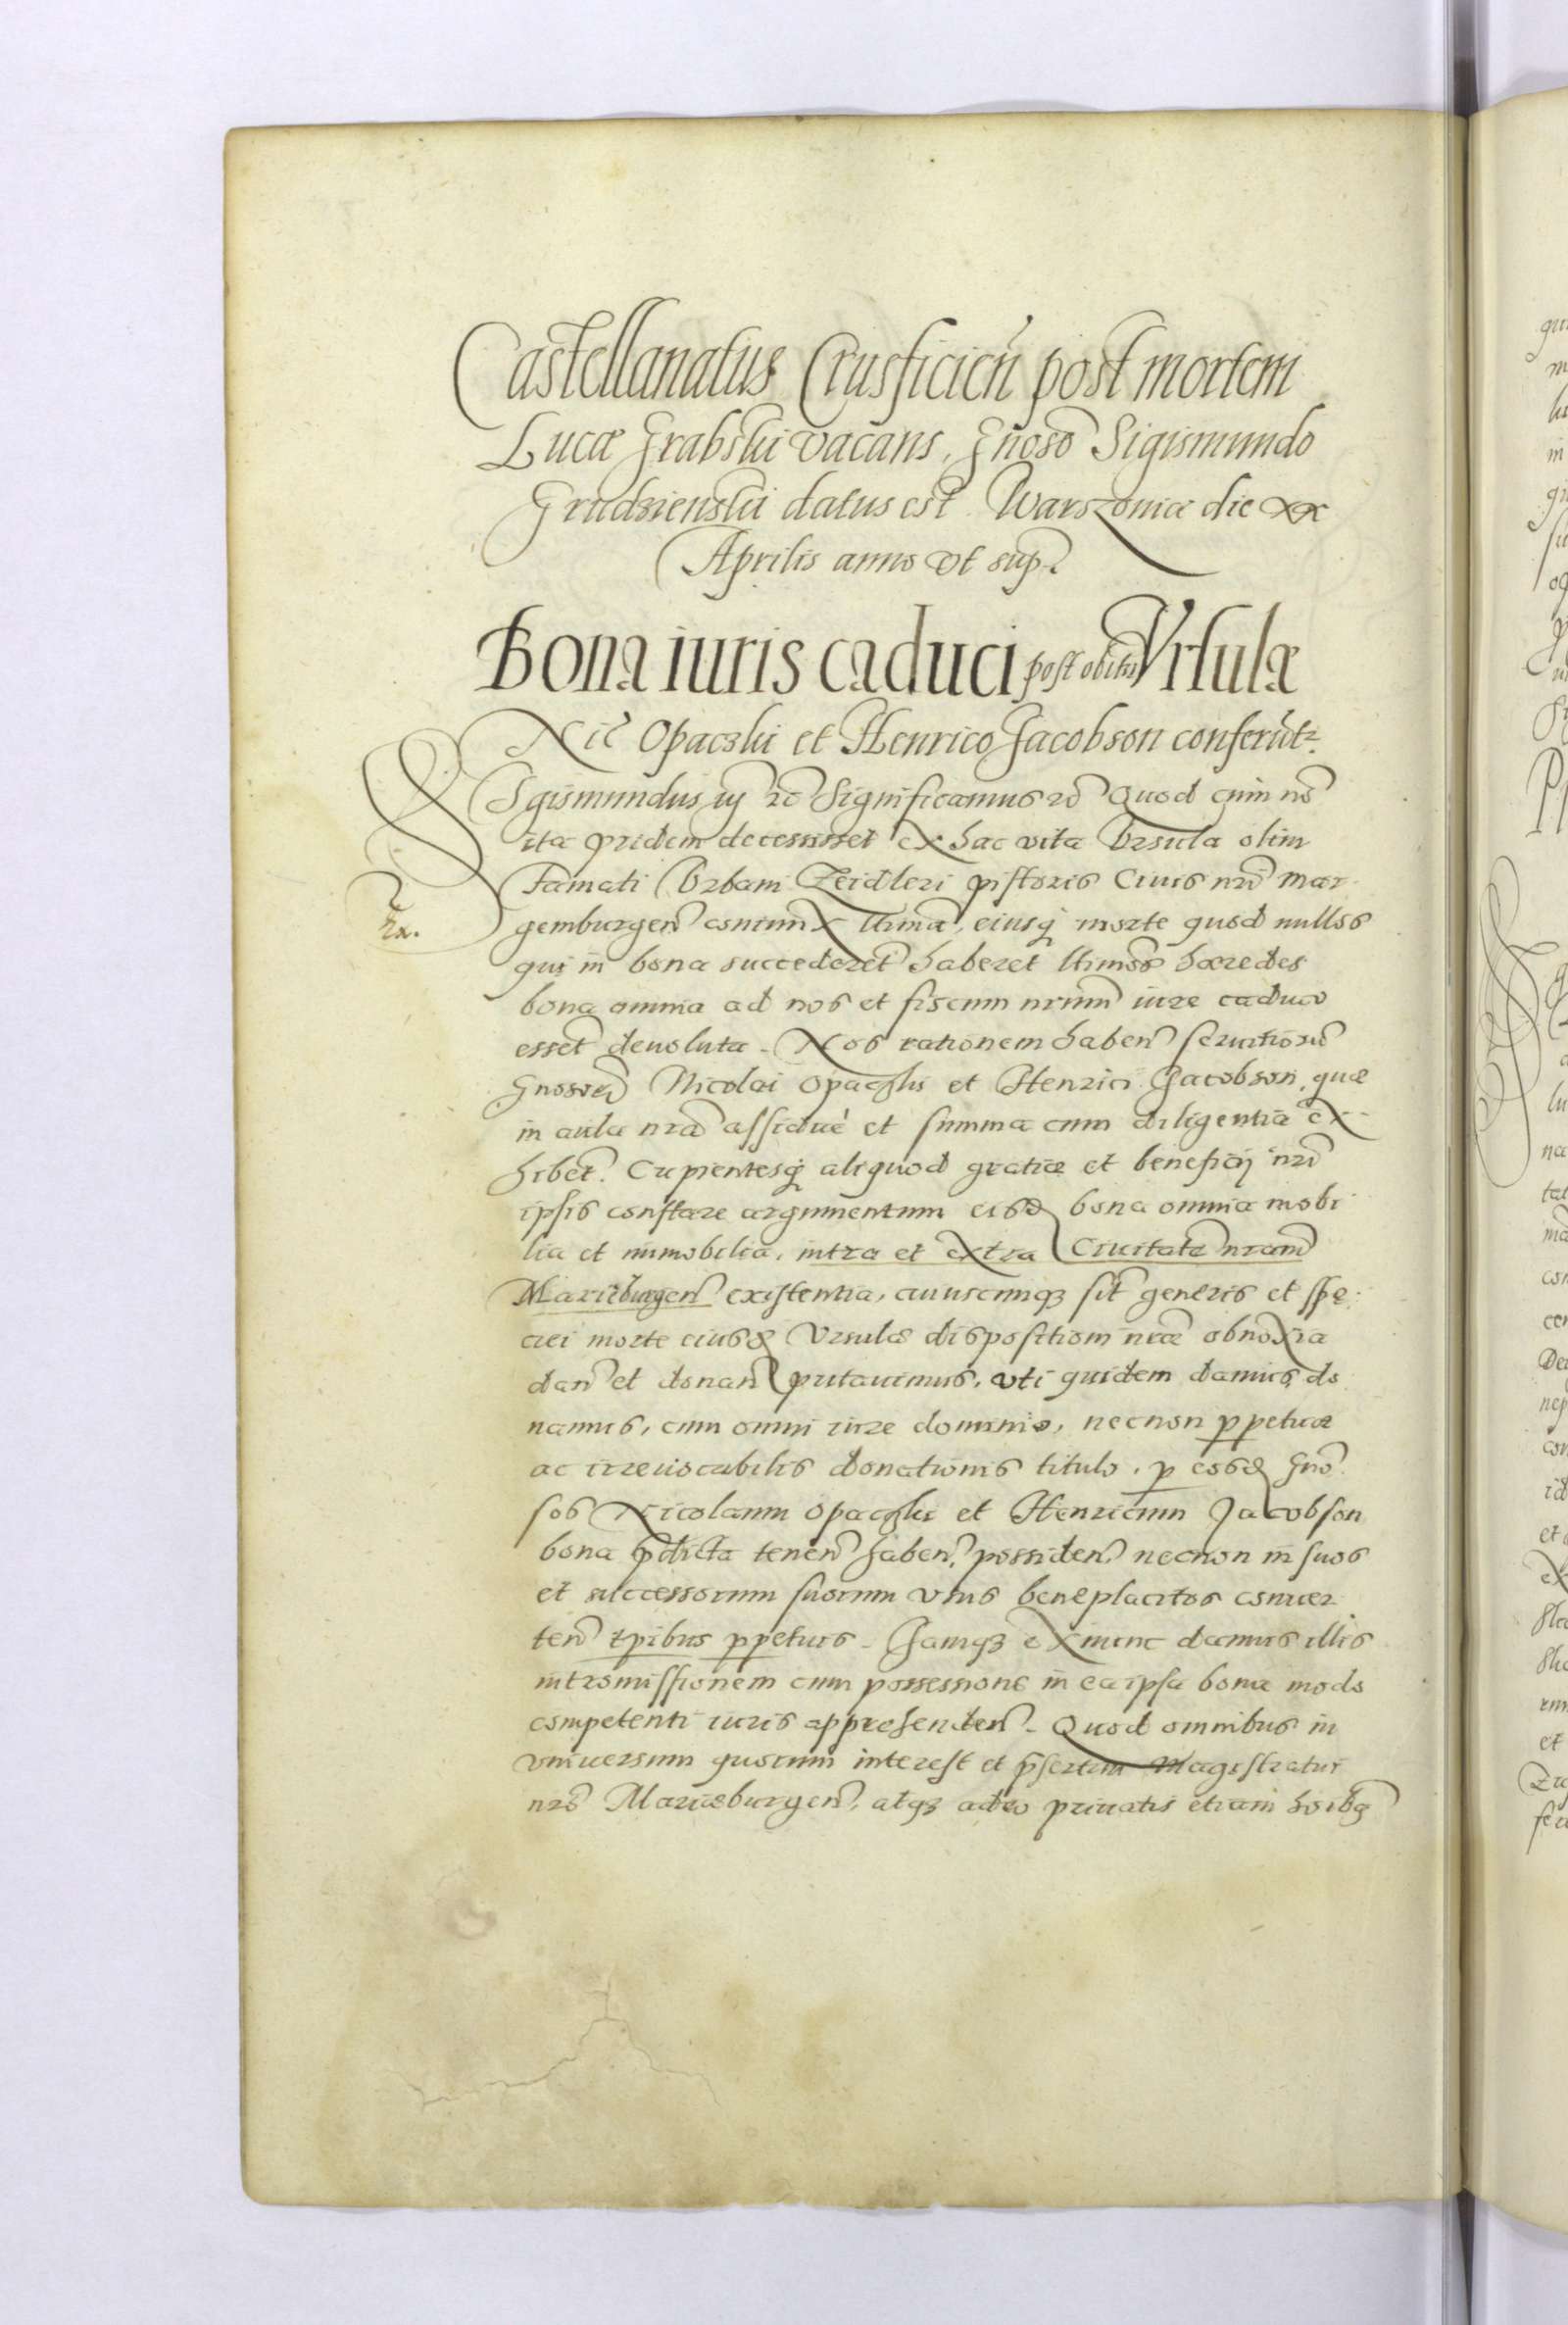 Castellanatus Crusficień post mortem
Lucæ Grabski vacans, Gnoso Sigismundo
Grudzienski datus est Warszoviæ die xx
Aprilis anno vt sup.
Bona iuris caduci post obitū Vrsulæ
Nic Opaczki et Henrico Jacobson conferūtr.
Sigismundus iij rc Significamus rc Quod cum nō
ita pridem decessisset ex hac vita Vrsula olim
Famati Vrbani Zeidleri pistoris Ciuis nri Mar
gemburgen coniunx ltima, eiusq morte quod nullos
qui in bona succederet haberet ltimos hæredes
bona omnia ad nos et fiscum nrum iure caduco
essent deuoluta. Nos rationem haben seruitiorū
Gnosor Nicolai Opaczki et Henrici Jacobson, quæ
in aula nra assiduè et summa cum diligentia ex
hibet. Cupientesq aliquod gratiæ et beneficij nri
ipsis constare argumentum eisd bona omnia mobi
lia et immobilia, intra et extra Ciuitatē nram
Marieburgen existentia, cuiuscunq sit generis et spe
ciei morte eiusd Vrsulæ dispositioni nræ obnoxia
dan et donan putauimus, vti quidem damus, do
namus, cum omni iure dominio, necnon ppetuæ
ac irreuocabilis donationis titulo, p eosd Gno
sos Nicolaum Opaczki et Henricum Jacobson
bona pdicta tenen haben, possiden necnon in suos
et successorum suorum vsus beneplacitos conuer
ten tpibus ppetuis. Jamq ex nunc damus illis
intromissionem cum possessione in ea ipsa bona modo
competenti iuris apprehenden. Quod omnibus in
vniuersum quorum interest et psertim Magistratui
nro Marieburgen, atq adeo priuatis etiam hoibq